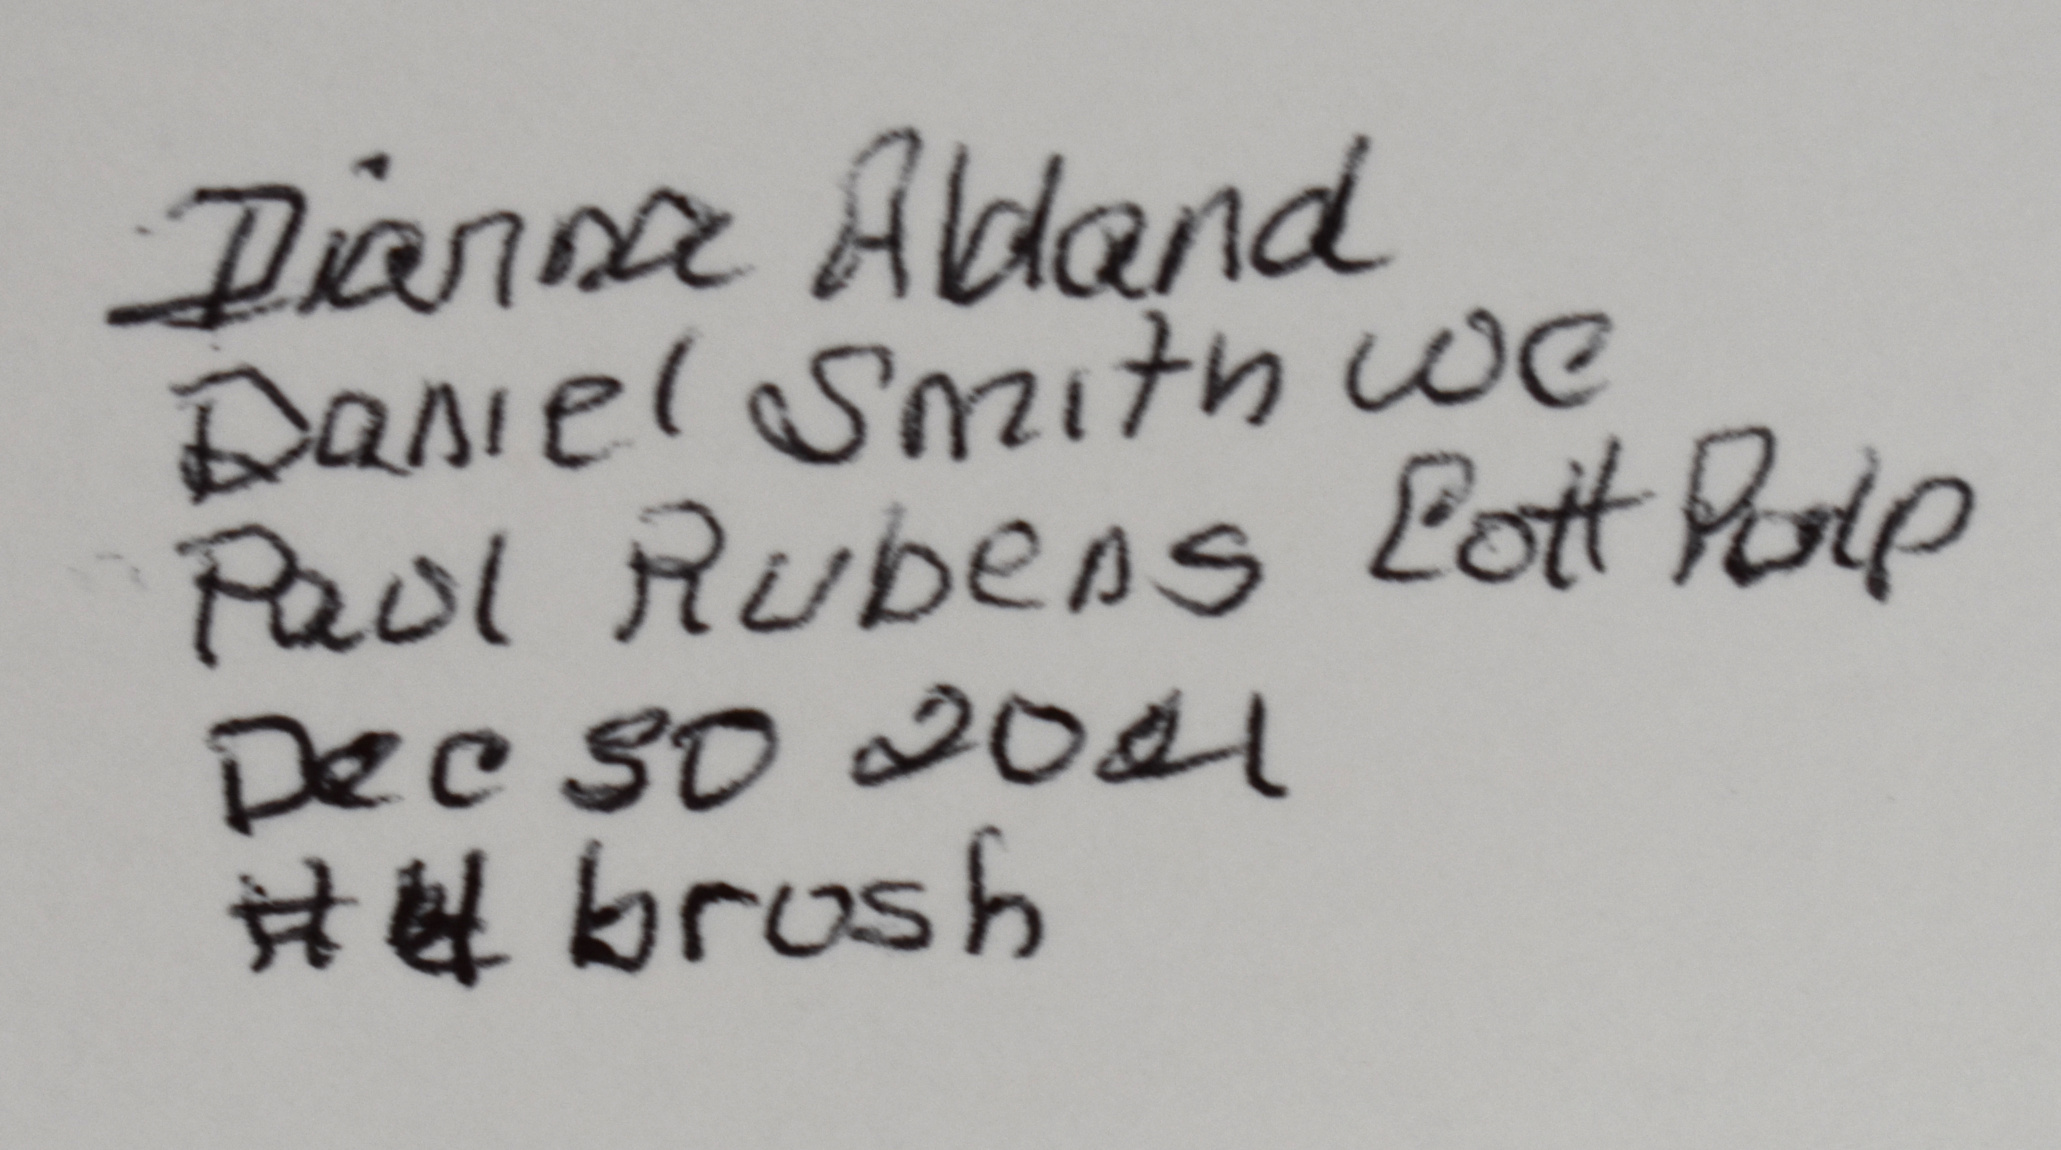 Dianna Abland
Daniel Smith WC
Paul Rubens Cott Pulp
Dec 30 2021
#4 brush